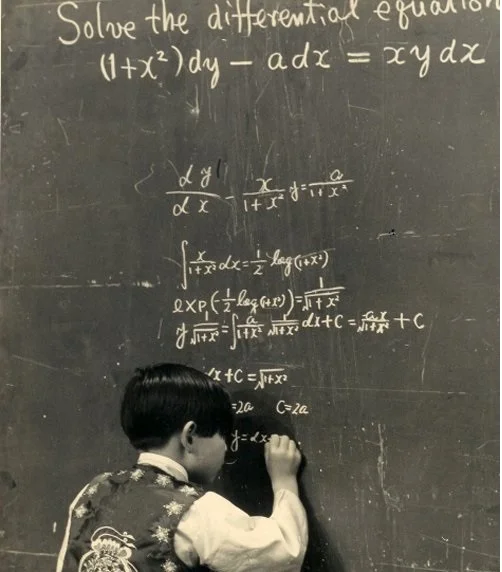 Solve the differential equation
(1+x²)dy − adx = xydx
dy/dx − x/(1+x²) y = a/(1+x²)
∫ x/(1+x²) dx = 1/2 log(1+x²)
exp(−1/2 log(1+x²)) = 1/√(1+x²)
y 1/√(1+x²) = ∫ a/(1+x²) 1/√(1+x²) dx + C = ax/√(1+x²) + C
x+C = √(1+x²)
=2a C=2a
y=